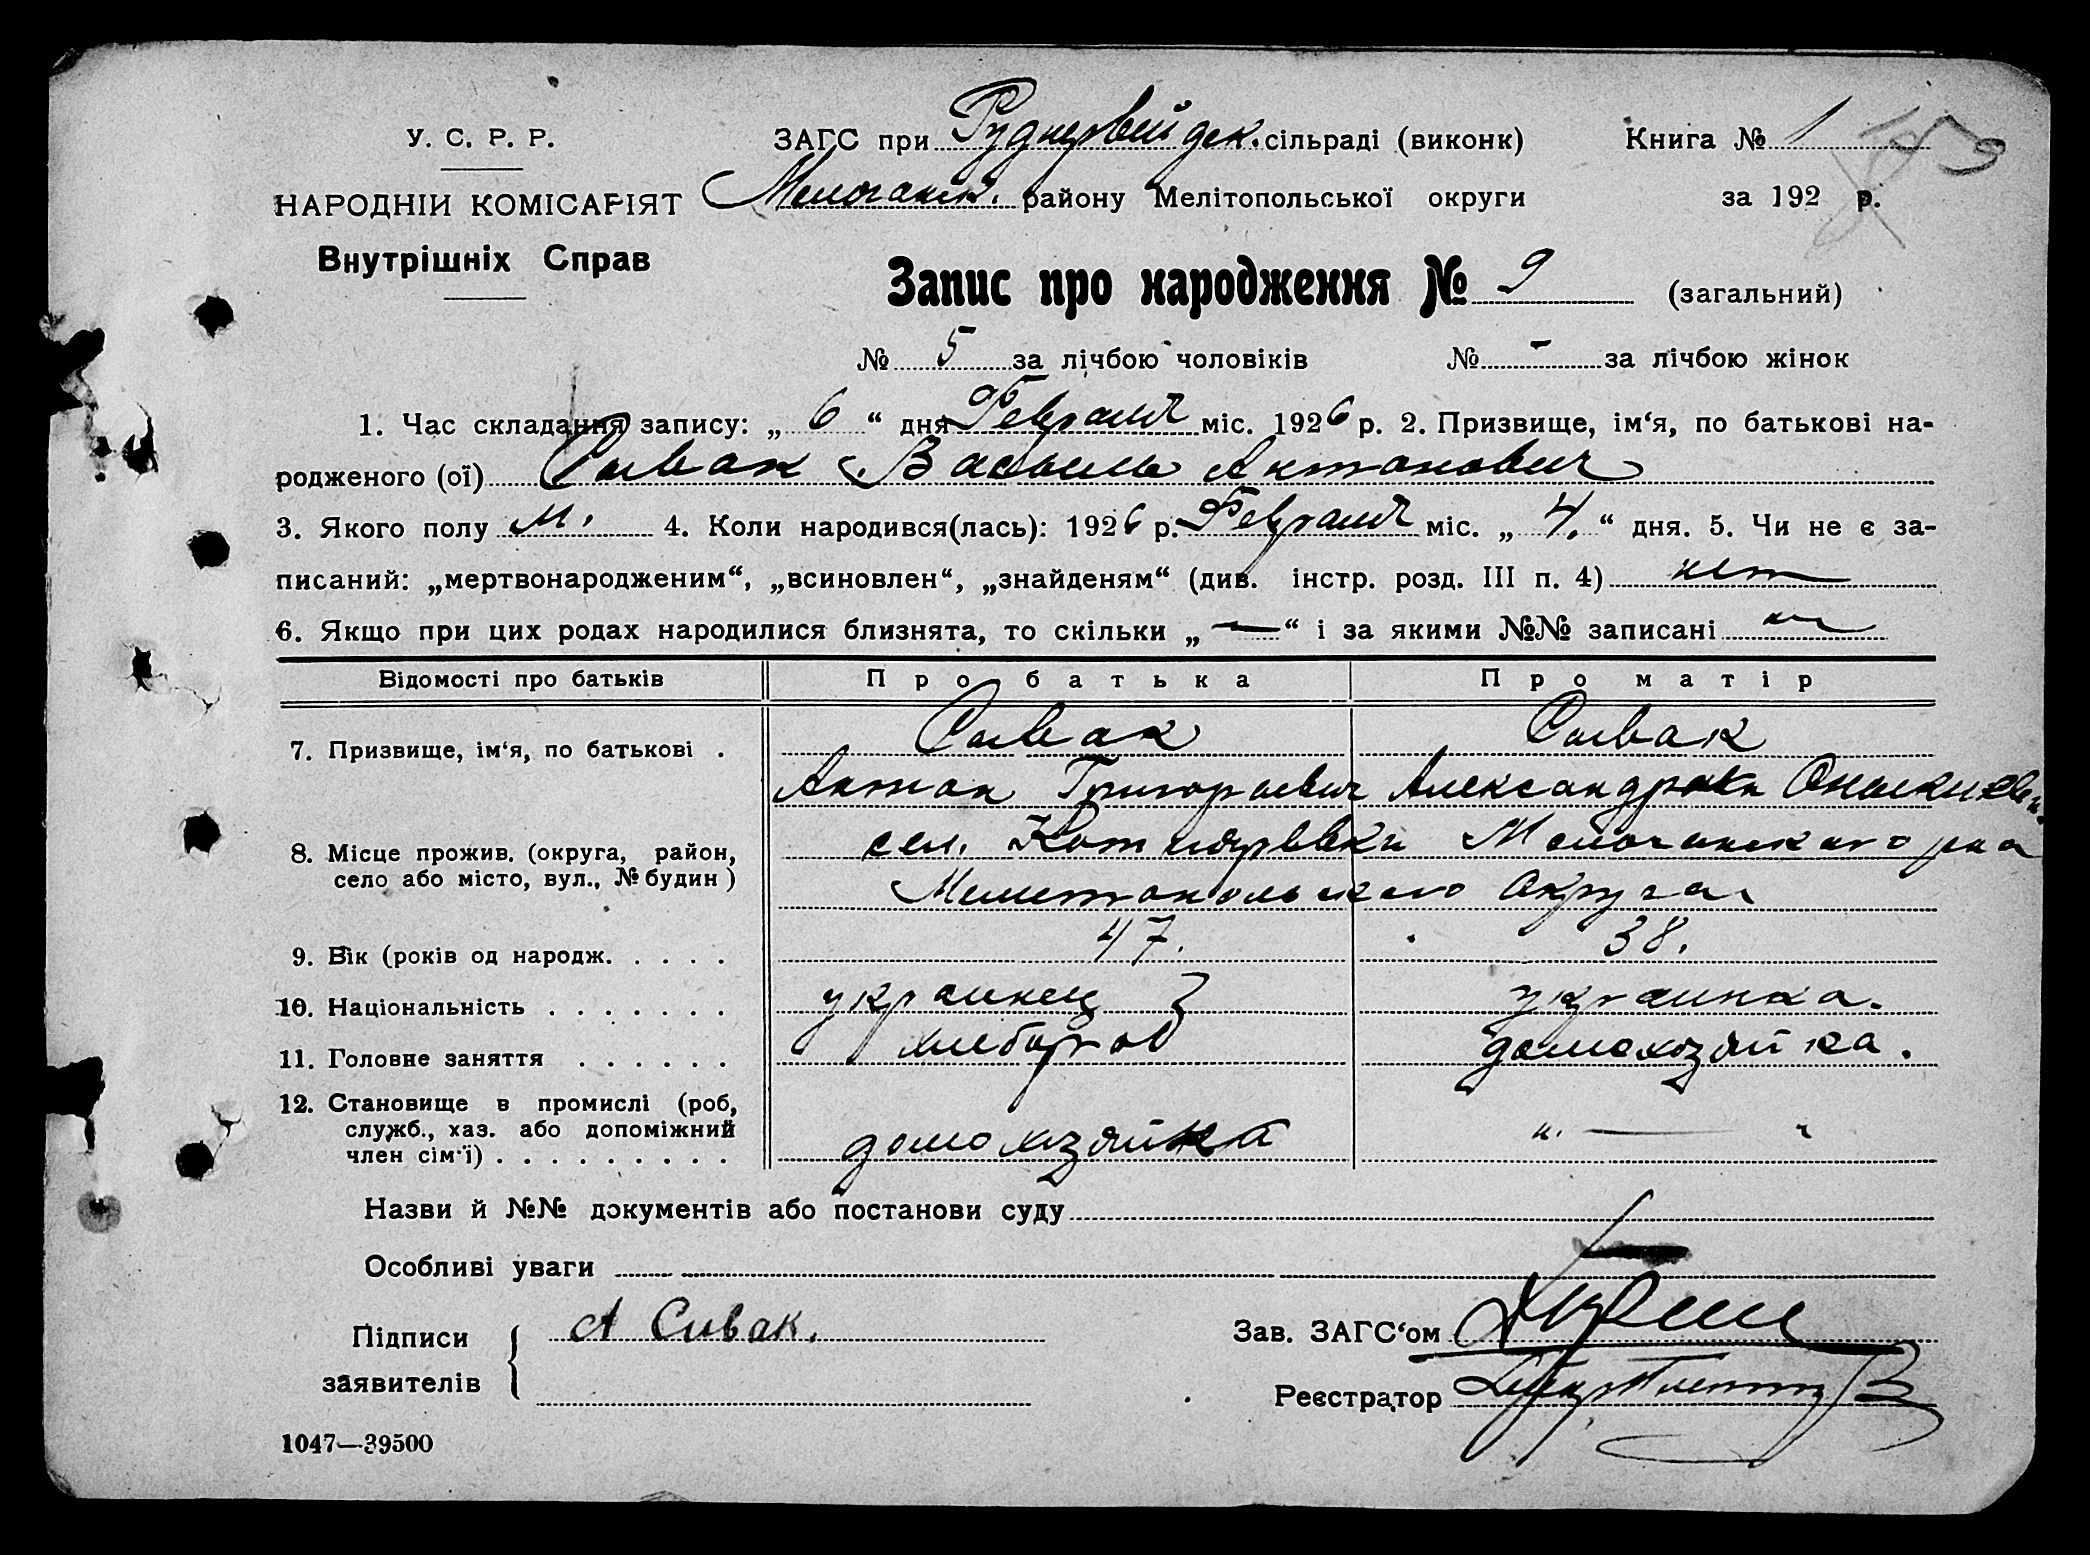 У. С. Р. Р.
НАРОДНІЙ КОМІСАРІЯТ
Внутрішніх Справ
ЗАГС при сільраді (виконк)
Молочанск. району Мелітопольської округи
Книга № 1
за 192 р.
Запис про народження № 9 (загальний)
№ 5 за лічбою чоловіків № - за лічбою жінок
1. Час складання запису: „ 6 “ дня Февраля міс. 1926 р. 2. Призвище, ім‘я, по батькові на-
родженого (ої) Сывак Василь Антонович
3. Якого полу м. 4. Коли народився(лась): 1926 р. Февраля міс. „ 4. “ дня. 5. Чи не є за-
писаний: „мертвонародженим“, „всиновлен“, „знайденям“ (див. інстр. розд. III п. 4) нет
6. Якщо при цих родах народилися близнята, то скільки „ — “ і за якими №№ записані
Відомості про батьків Про батька Про матір
7. Призвище, ім‘я, по батькові . Сывак Сывак
Антон Григорьевич Александра
8. Місце прожив. (округа, район, сел. Молочанского р-на
село або місто, вул., № будин) Мелитопольского Округа
9. Вік (років од народж. . . . . 47. 38.
10. Національність . . . . . . . украинец украинка.
11. Головне заняття . . . . . . хлебороб домохозяйка.
12. Становище в промислі (роб,
служб., хаз. або допоміжний
член сім‘ї) . . . . . . . . . домохозяйка „ — „
Назви й №№ документів або постанови суду
Особливі уваги
Підписи А Сивак.
заявителів
Зав. ЗАГС‘ом
Реєстратор
1047—39500